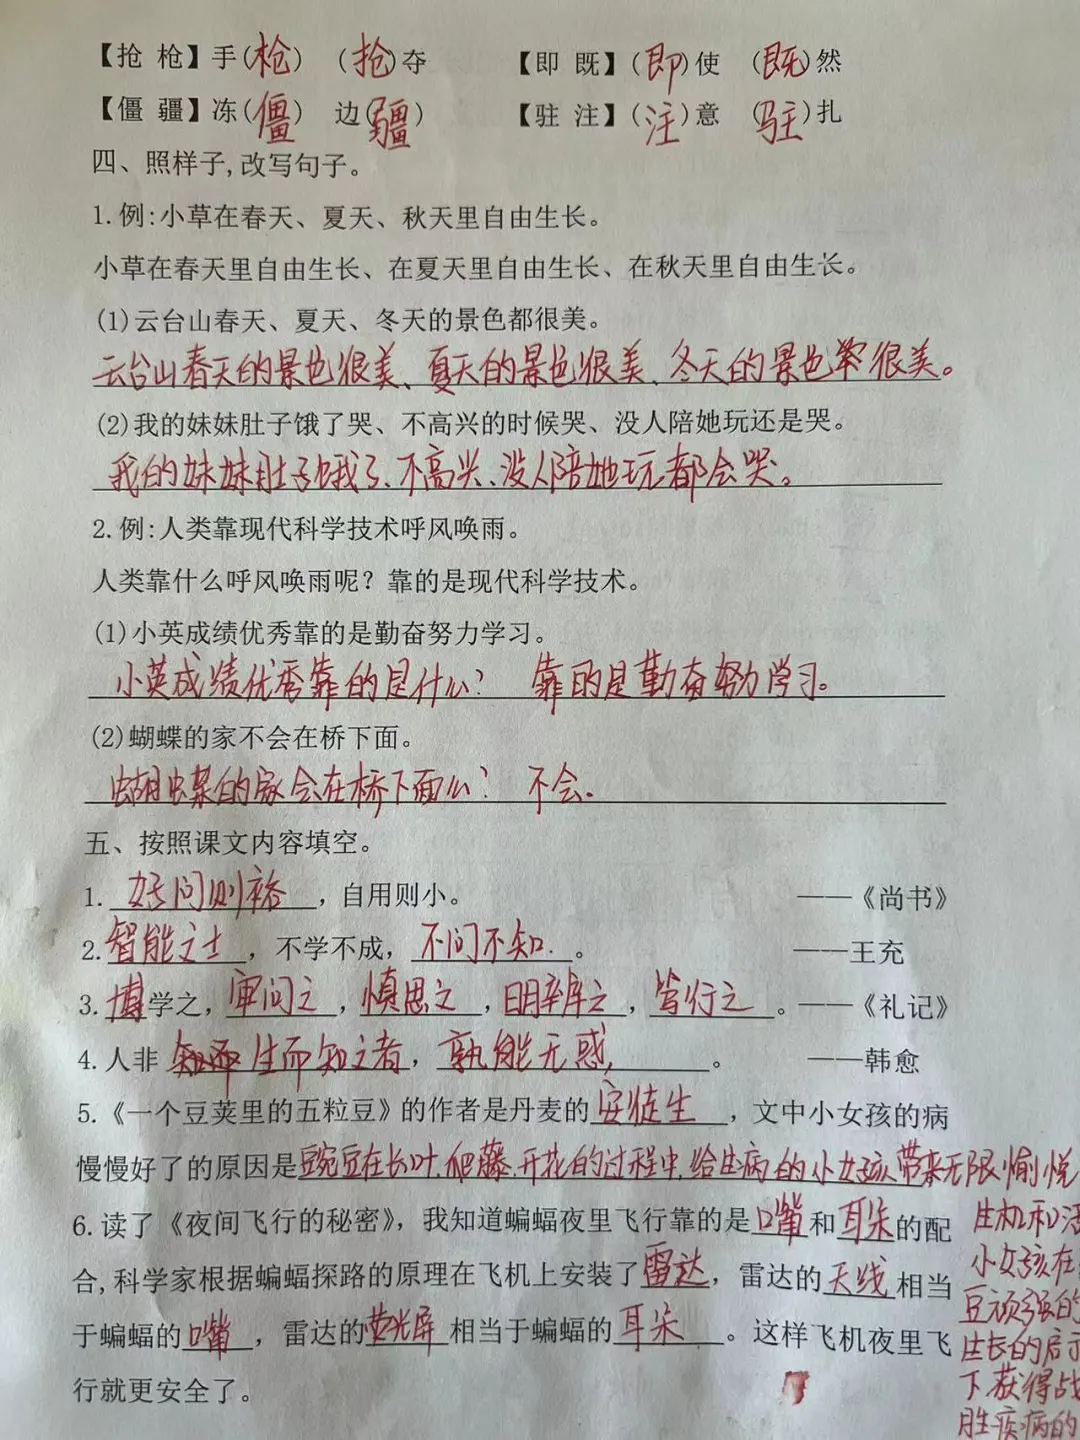 【抢 枪】手(枪) (抢)夺 【即 既】(即)使 (既)然
【僵 疆】冻(僵) 边(疆) 【驻 注】(注)意 (驻)扎
四、照样子,改写句子。
1.例:小草在春天、夏天、秋天里自由生长。
小草在春天里自由生长、在夏天里自由生长、在秋天里自由生长。
(1)云台山春天、夏天、冬天的景色都很美。
云台山春天的景色很美、夏天的景色很美、冬天的景色很美。
(2)我的妹妹肚子饿了哭、不高兴的时候哭、没人陪她玩还是哭。
我的妹妹肚子饿了、不高兴、没人陪她玩都会哭。
2.例:人类靠现代科学技术呼风唤雨。
人类靠什么呼风唤雨呢?靠的是现代科学技术。
(1)小英成绩优秀靠的是勤奋努力学习。
小英成绩优秀靠的是什么? 靠的是勤奋努力学习。
(2)蝴蝶的家不会在桥下面。
蝴蝶的家会在桥下面么? 不会.
五、按照课文内容填空。
1.好问则裕,自用则小。 ——《尚书》
2.智能之士,不学不成,不问不知.。 ——王充
3.博学之,审问之,慎思之,明辨之,笃行之。——《礼记》
4.人非生而知之者,孰能无惑,。 ——韩愈
5.《一个豆荚里的五粒豆》的作者是丹麦的安徒生,文中小女孩的病
慢慢好了的原因是豌豆在长叶.爬藤.开花的过程中,给生病的小女孩带来无限愉悦
生机和活
6.读了《夜间飞行的秘密》,我知道蝙蝠夜里飞行靠的是嘴和耳朵的配
小女孩在
合,科学家根据蝙蝠探路的原理在飞机上安装了雷达,雷达的天线相当
豆顽强的
于蝙蝠的嘴,雷达的荧光屏相当于蝙蝠的耳朵。这样飞机夜里飞
生长的启示
行就更安全了。
下获得战
胜疾病的